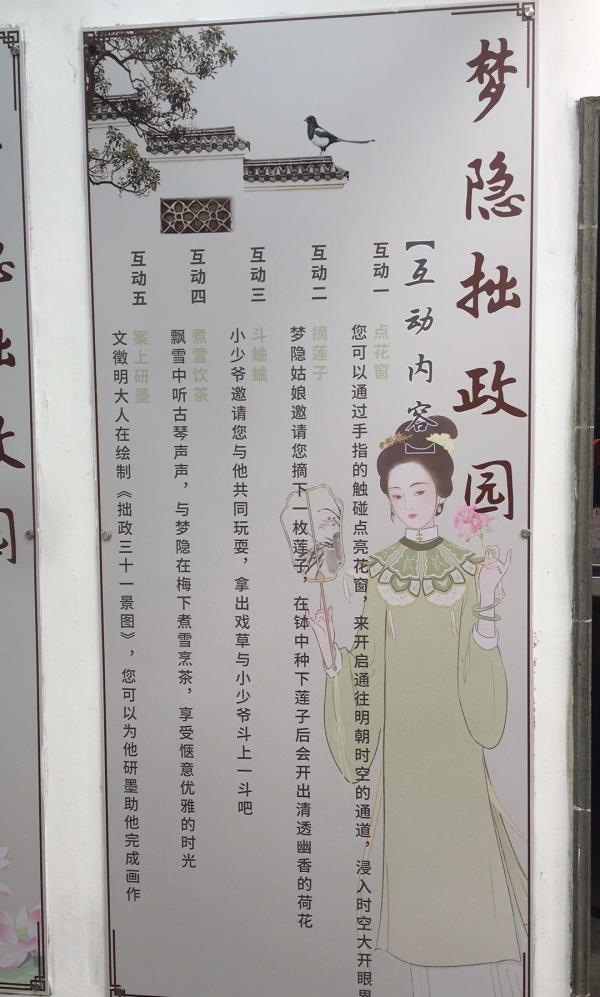 梦隐拙政园
【互动内容】
互动一
点花窗
您可以通过手指的触碰点亮花窗，来开启通往明朝时空的通道，浸入时空大开眼界
互动二
摘莲子
梦隐姑娘邀请您摘下一枚莲子，在钵中种下莲子后会开出清透幽香的荷花
互动三
斗蛐蛐
小少爷邀请您与他共同玩耍，拿出戏草与小少爷斗上一斗吧
互动四
煮雪饮茶
飘雪中听古琴声声，与梦隐在梅下煮雪烹茶，享受惬意优雅的时光
互动五
案上研墨
文徵明大人在绘制《拙政三十一景图》，您可以为他研墨助他完成画作